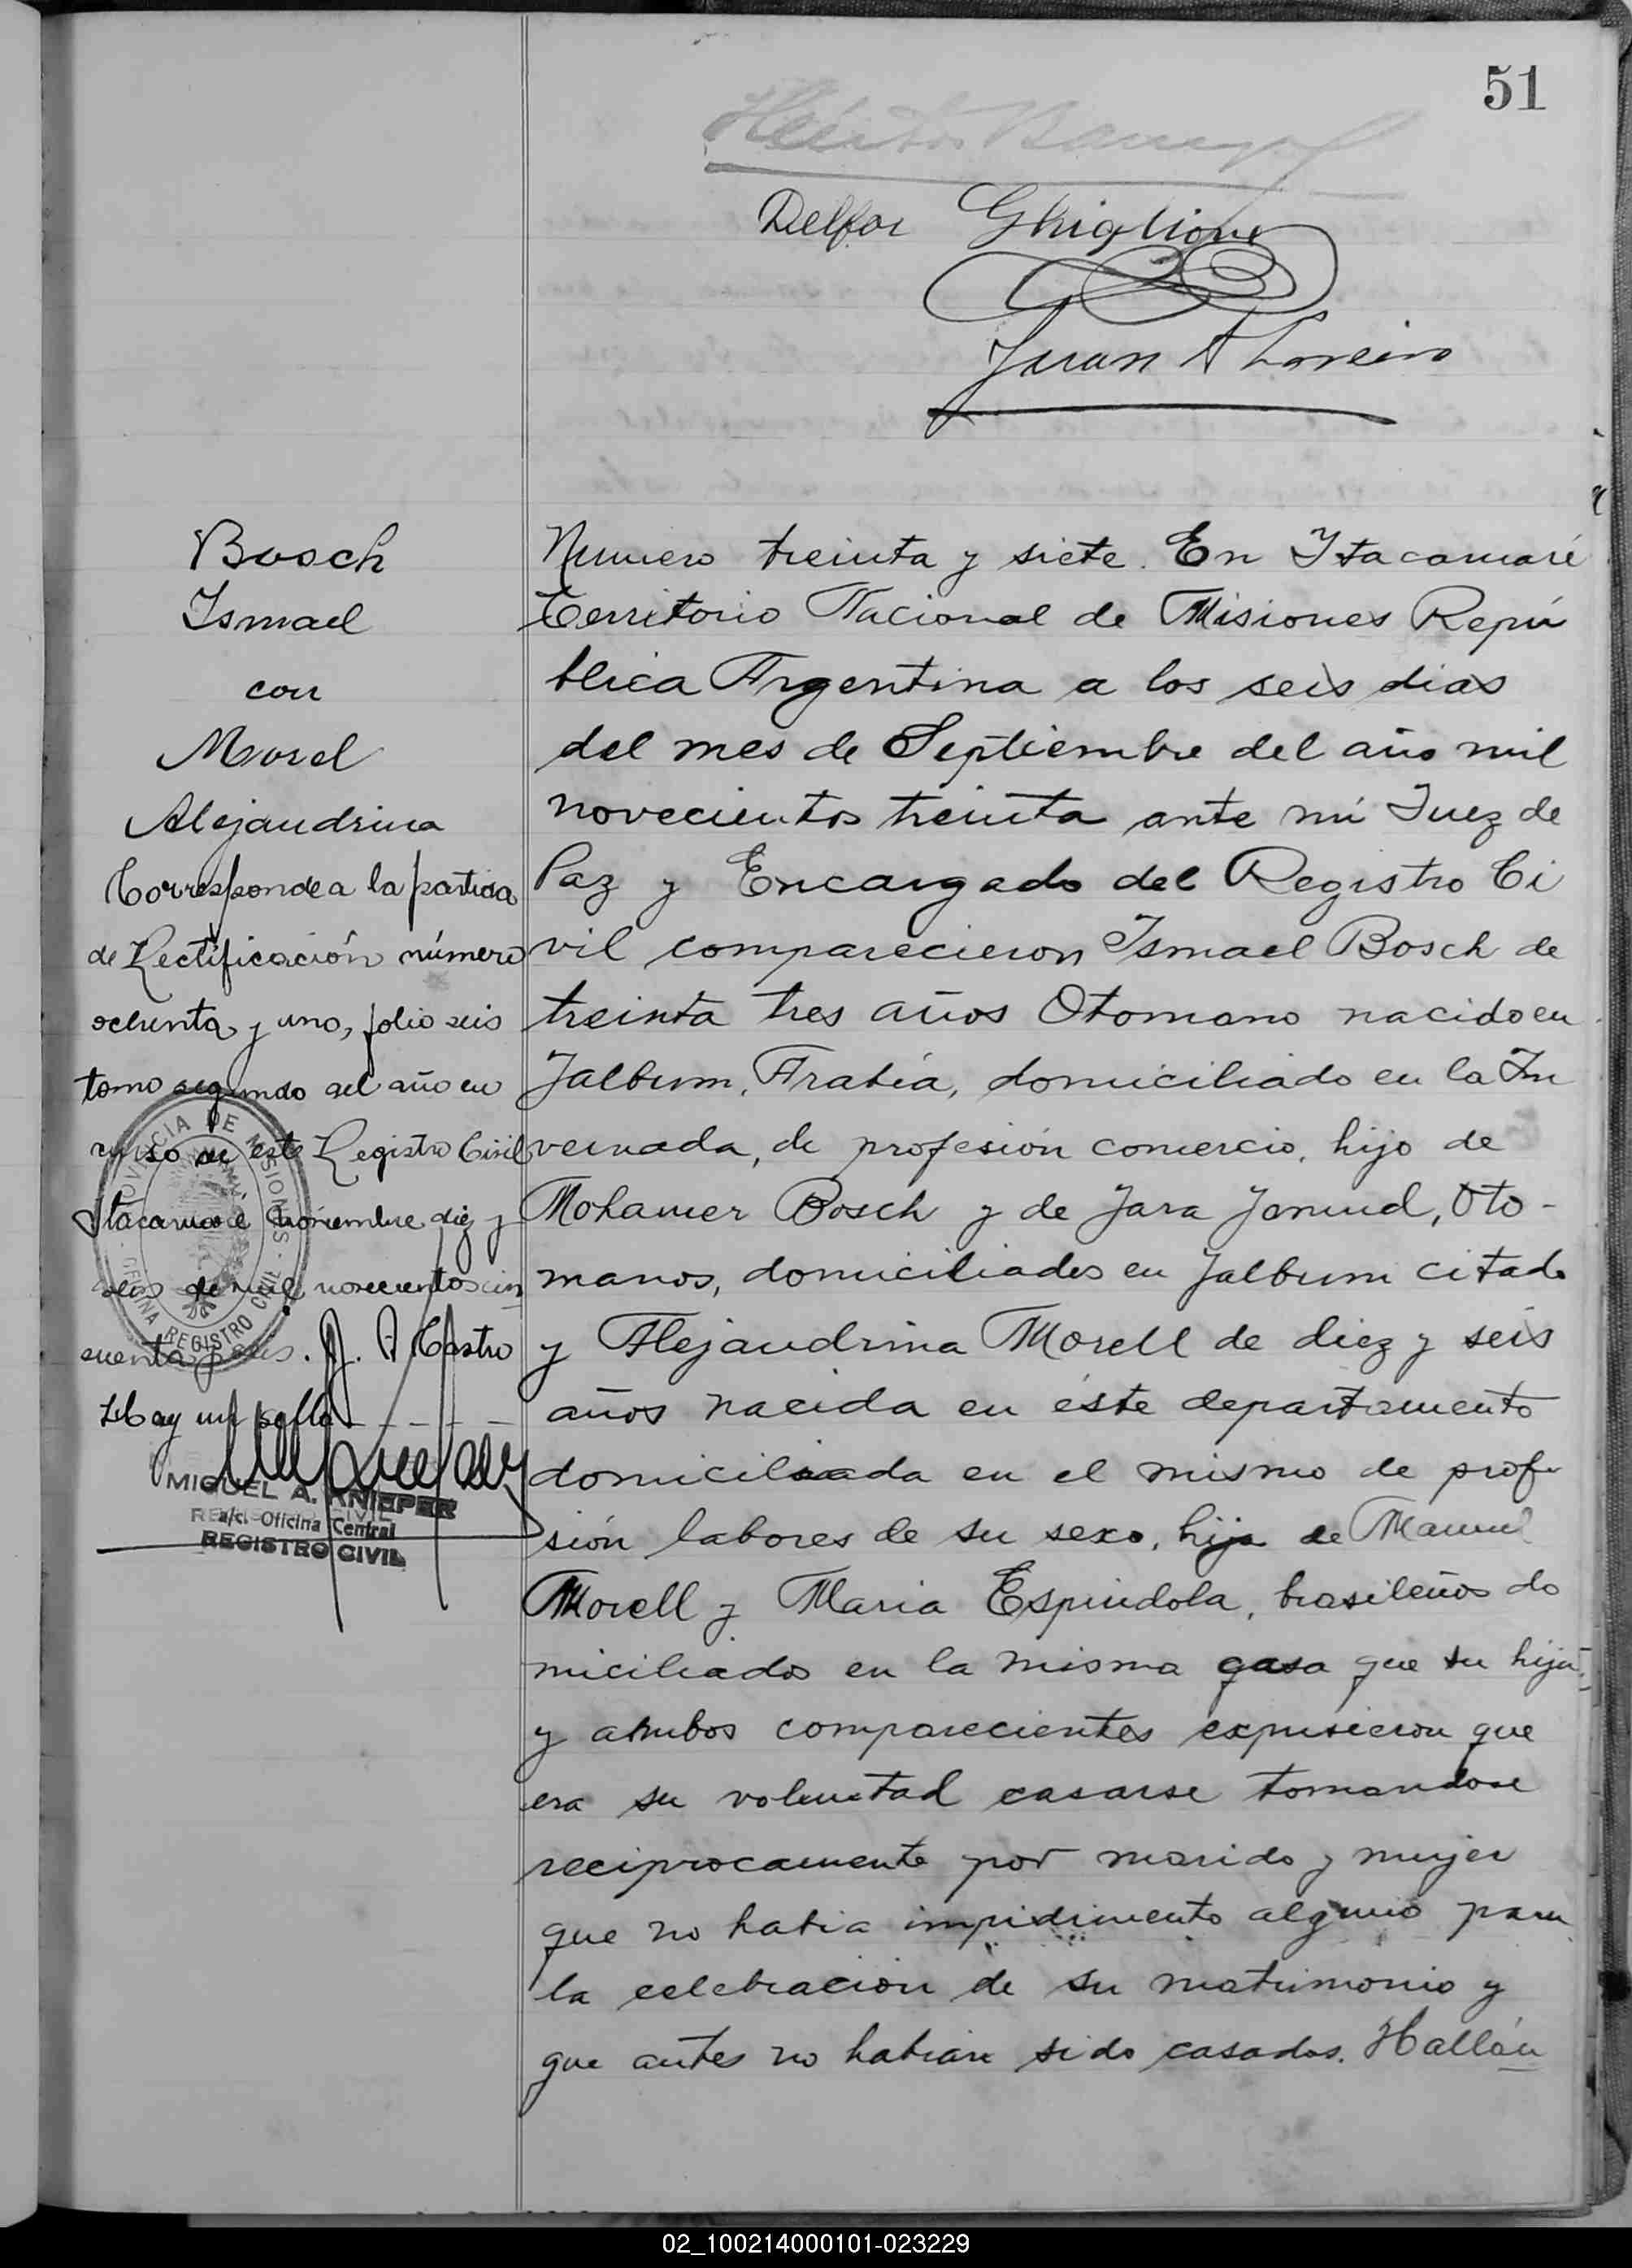 51
Delfor Ghiglione
Juan A
Bosch
Ismael
con
Morel
Alejandrina
Corresponde a la partida
de Rectificación número
ochenta y uno, folio seis
tomo segundo del año en
curso de este Registro Civil
Itacaruaré Noviembre diez y
seis de mil novecientos cin
cuenta y seis. J. A. Castro
Hay un sello - - - -
PROVINCIA DE MISIONES
OFICINA REGISTRO CIVIL
MIGUEL A. KNIEPER
a/c. Oficina Central
REGISTRO CIVIL
Numero treinta y siete. En Itacaruaré
Territorio Nacional de Misiones Repú
blica Argentina a los seis dias
del mes de Septiembre del año mil
novecientos treinta ante mí Juez de
Paz y Encargado del Registro Ci
vil comparecieron Ismael Bosch de
treinta tres años Otomano nacido en
Jalbum, Arabia, domiciliado en la In
vernada, de profesión comercio, hijo de
Mohamer Bosch y de Jara Jamud, Oto-
manos, domiciliados en Jalbum citado
y Alejandrina Morell de diez y seis
años nacida en éste departamento
domiciliada en el mismo de profe
sión labores de su sexo, hija de Manuel
Morell y Maria Espindola, brasileños do
miciliados en la misma casa que su hija,
y ambos comparecientes expusieron que
era su voluntad casarse tomandose
reciprocamente por marido y mujer
que no habia impidimento alguno para
la celebracion de su matrimonio y
que antes no habian sido casados. Hallán
02_100214000101-023229